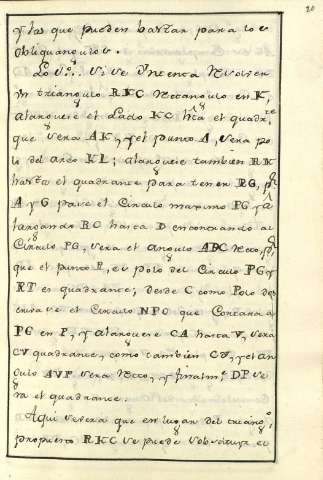 20
y las que pueden bastar para los
obliquangulos.
Lo 1º. Si se Intenta resolver
un triangulo RKC rectangulo en K,
alarguese el Lado KC hta el quadrte
que sera AK, y el punto A, sera po
lo del arco KL; alarguese tambien RK
hasta el quadrante para tener RG, pr
A y G pase el Circulo maximo PG y a
largando RC hasta D encontrando al
Circulo PG, sera el angulo ADC recto, pr
que el punto R, es polo del Circulo PG y
RT es quadrante; desde C como Polo des
crivase el Circulo NPO que Cortara a
PG en P, y alarguese CA hasta V, sera
CV quadrante, como tambien CV, y el an
gulo AVP sera recto, y finalmte DP se
ra el quadrante.
Aqui se vera que en lugar del triangº
propuesto RKC se puede substituir el